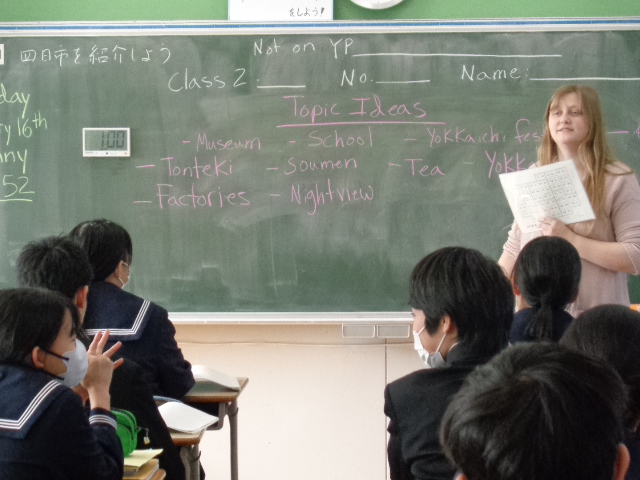 をしよう!
四日市を紹介しよう
Not on YP
Class 2 . No. Name:
Topic Ideas
- Museum - School - Yokkaichi fes
- Tonteki - Soumen - Tea - Yokka
- Factories - Nightview
day
ry 16th
nny
52
100